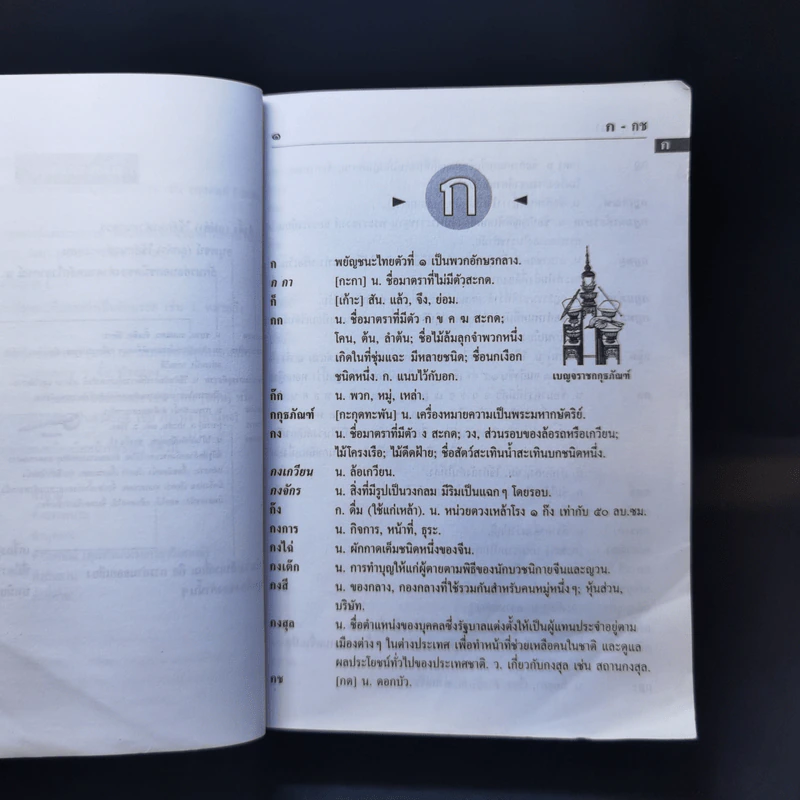 ๑ ก - กช
ก
ก
ก พยัญชนะไทยตัวที่ ๑ เป็นพวกอักษรกลาง.
ก กา [กะกา] น. ชื่อมาตราที่ไม่มีตัวสะกด.
ก็ [เก้าะ] สัน. แล้ว, จึง, ย่อม.
กก น. ชื่อมาตราที่มีตัว ก ข ค ฆ สะกด;
โคน, ต้น, ลำต้น; ชื่อไม้ล้มลุกจำพวกหนึ่ง
เกิดในที่ชุ่มแฉะ มีหลายชนิด; ชื่อนกเงือก
ชนิดหนึ่ง. ก. แนบไว้กับอก.
เบญจราชกกุธภัณฑ์
ก๊ก น. พวก, หมู่, เหล่า.
กกุธภัณฑ์ [กะกุดทะพัน] น. เครื่องหมายความเป็นพระมหากษัตริย์.
กง น. ชื่อมาตราที่มีตัว ง สะกด; วง, ส่วนรอบของล้อรถหรือเกวียน;
ไม้โครงเรือ; ไม้ดีดฝ้าย; ชื่อสัตว์สะเทินน้ำสะเทินบกชนิดหนึ่ง.
กงเกวียน น. ล้อเกวียน.
กงจักร น. สิ่งที่มีรูปเป็นวงกลม มีริมเป็นแฉก ๆ โดยรอบ.
กึ๊ง ก. ดื่ม (ใช้แก่เหล้า). น. หน่วยตวงเหล้าโรง ๑ กึ๊ง เท่ากับ ๕๐ ลบ.ซม.
กงการ น. กิจการ, หน้าที่, ธุระ.
กงไฉ่ น. ผักกาดเค็มชนิดหนึ่งของจีน.
กงเต๊ก น. การทำบุญให้แก่ผู้ตายตามพิธีของนักบวชนิกายจีนและญวน.
กงสี น. ของกลาง, กองกลางที่ใช้รวมกันสำหรับคนหมู่หนึ่ง ๆ; หุ้นส่วน,
บริษัท.
กงสุล น. ชื่อตำแหน่งของบุคคลซึ่งรัฐบาลแต่งตั้งให้เป็นผู้แทนประจำอยู่ตาม
เมืองต่าง ๆ ในต่างประเทศ เพื่อทำหน้าที่ช่วยเหลือคนในชาติ และดูแล
ผลประโยชน์ทั่วไปของประเทศชาติ. ว. เกี่ยวกับกงสุล เช่น สถานกงสุล.
กช [กด] น. ดอกบัว.